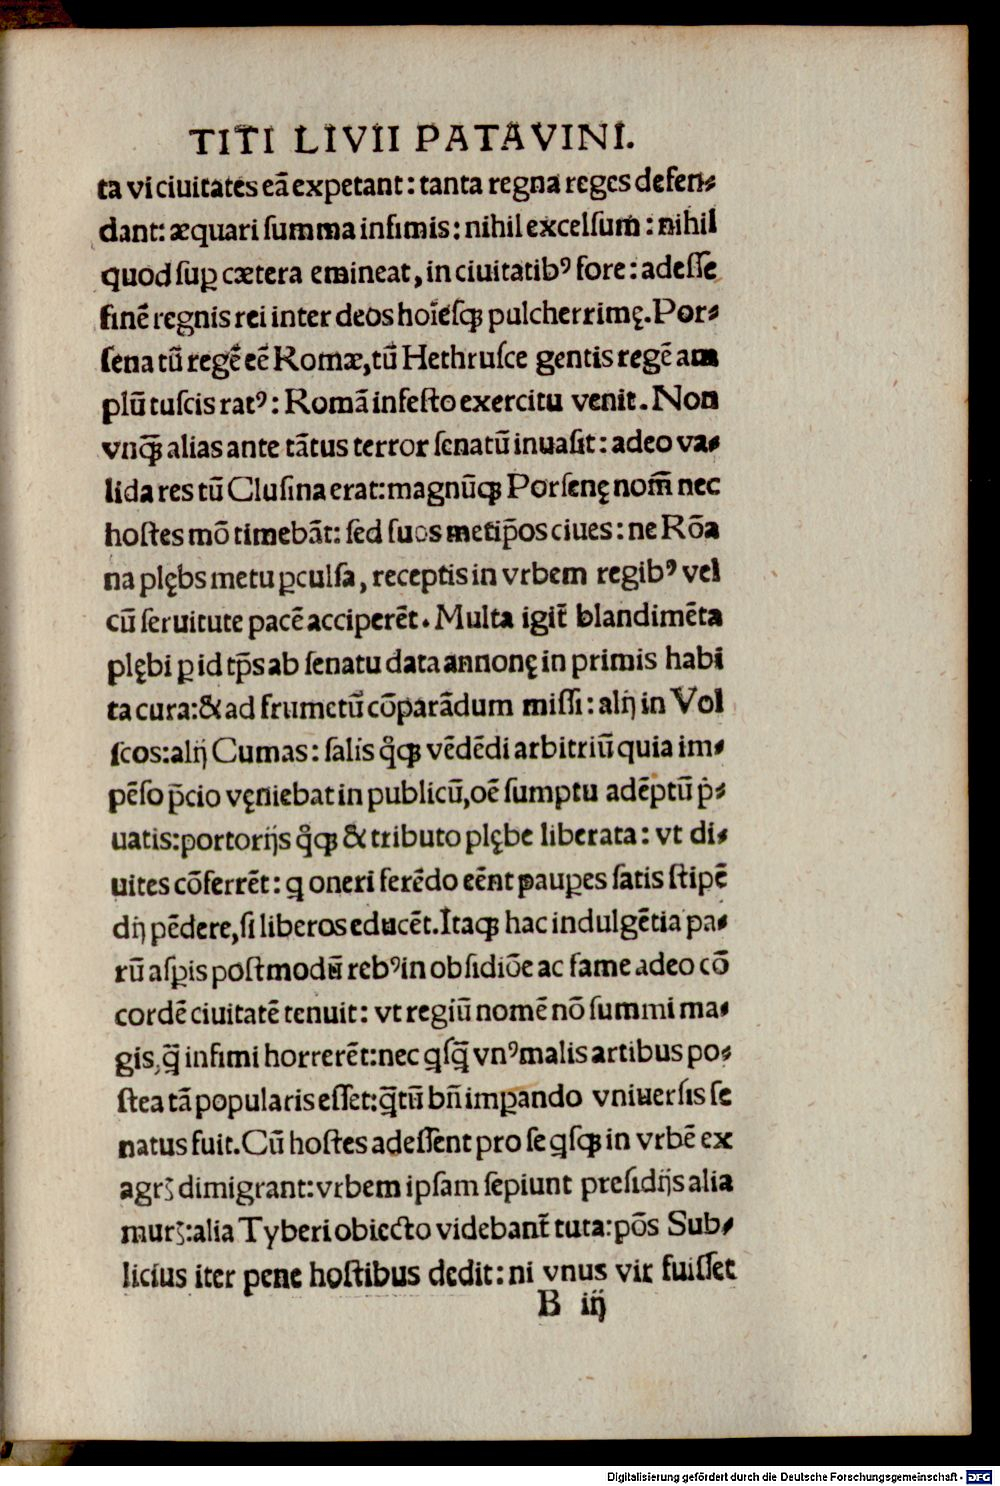 TITI LIVII PATAVINI.
ta vi ciuitates eā expetant: tanta regna reges defen⸗
dant: æquari ſumma infimis: nihil excelſum: nihil
quod ſuꝑ cætera emineat, in ciuitatibꝰ fore: adeſſe
finē regnis rei inter deos hoīeſqꝫ pulcherrimę. Por⸗
ſena tū regē eē Romæ, tū Hethruſce gentis regē am
plū tuſcis ratꝰ: Romā infeſto exercitu venit. Non
vnq̄ꝫ alias ante tātus terror ſenatū inuaſit: adeo va⸗
lida res tū Cluſina erat: magnūqꝫ Porſenę nom̄ nec
hoſtes mō timebāt: ſed ſuos metip̄os ciues: ne Rōa
na plębs metu ꝑculſa, receptis in vrbem regibꝰ vel
cū ſeruitute pacē acciperēt. Multa igit̄ blandimēta
plębi ꝑ id tp̄s ab ſenatu data annonę in primis habi
ta cura: & ad frumetū cōparādum miſſi: alij in Vol
ſcos: alij Cumas: ſalis q̊qꝫ vēdēdi arbitriū quia im⸗
pēſo p̄cio vęniebat in publicū, oē ſumptu adēptū pͥ⸗
uatis: portorijs q̊qꝫ & tributo plębe liberata: vt di⸗
uites cōferrēt: q oneri ferēdo eēnt pauꝑes ſatis ſtipē
dij pēdere, ſi liberos educēt. Itaqꝫ hac indulgētia pa⸗
rū aſꝑis poſtmodū rebꝰ in obſidiōe ac fame adeo cō
cordē ciuitatē tenuit: vt regiū nomē nō ſummi ma⸗
gis, q̄ infimi horrerēt: nec qſq̄ vnꝰ malis artibus po⸗
ſtea tā popularis eſſet: q̄tū bn̄ imꝑando vniuerſis ſe
natus fuit. Cū hoſtes adeſſent pro ſe qſqꝫ in vrbē ex
agrꝫ dimigrant: vrbem ipſam ſepiunt preſidijs alia
murꝫ: alia Tyberi obiecto videbant̄ tuta: pōs Sub⸗
licius iter pene hoſtibus dedit: ni vnus vir fuiſſet
B iij
Digitalisierung gefördert durch die Deutsche Forschungsgemeinschaft - DFG